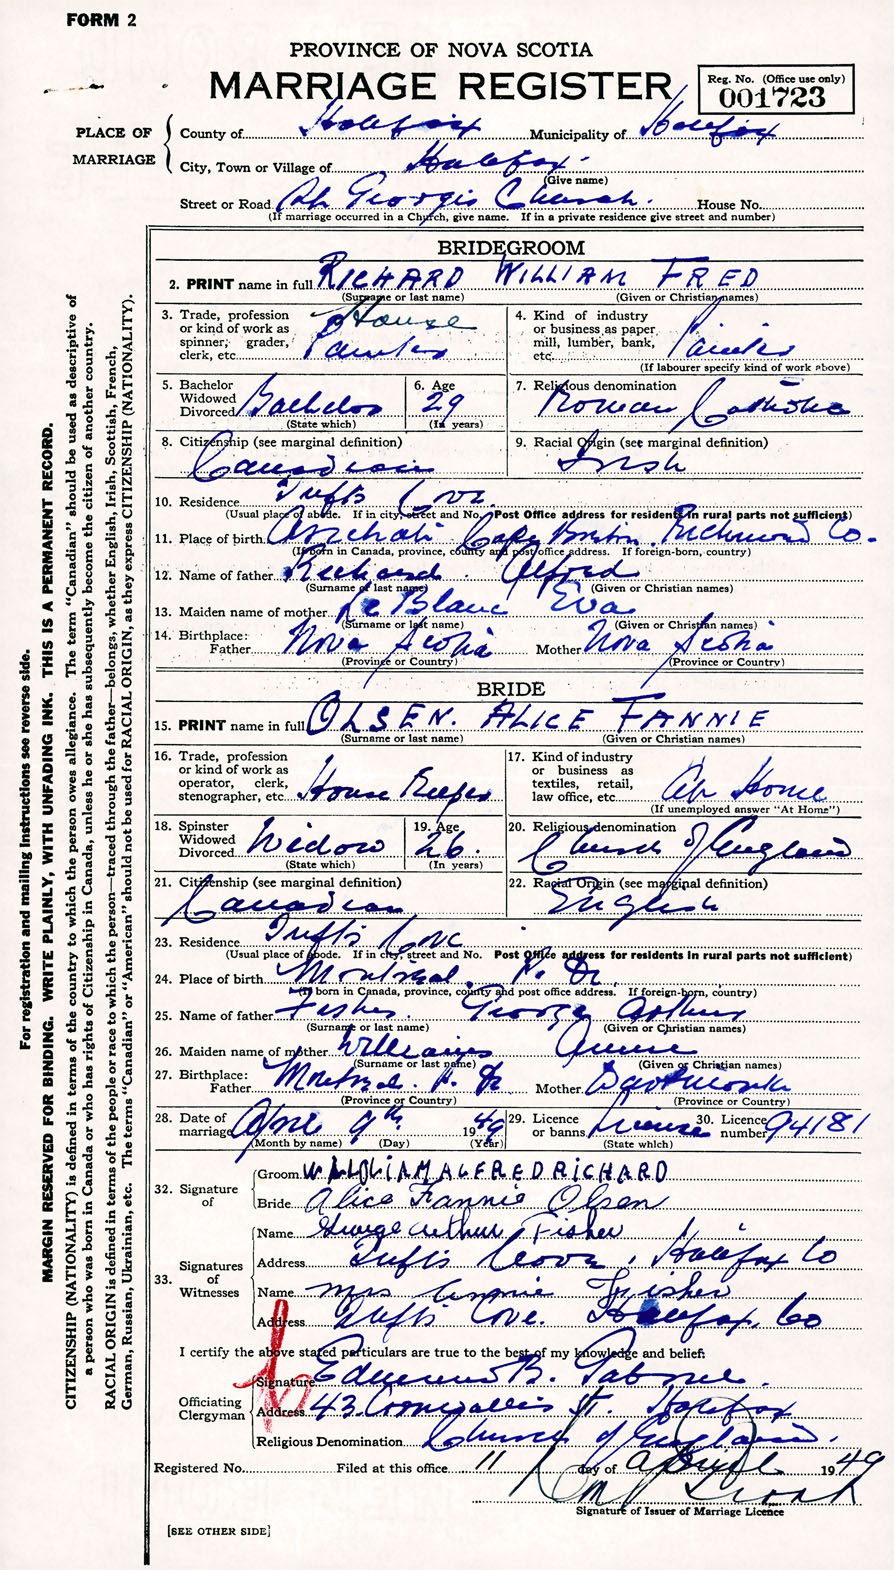 FORM 2
PROVINCE OF NOVA SCOTIA
MARRIAGE REGISTER
Reg. No. (Office use only)
001723
PLACE OF MARRIAGE
County of Halifax Municipality of Halifax
City, Town or Village of Halifax
(Give name)
Street or Road St. Georges Church. House No.
(If marriage occurred in a Church, give name. If in a private residence give street and number)
BRIDEGROOM
2. PRINT name in full RICHARD WILLIAM FRED
(Surname or last name) (Given or Christian names)
3. Trade, profession or kind of work as spinner, grader, clerk, etc. House Painter
4. Kind of industry or business as paper mill, lumber, bank, etc. Painter
(If labourer specify kind of work above)
5. Bachelor Widowed Divorced Bachelor
(State which)
6. Age 29
(In years)
7. Religious denomination Roman Catholic
8. Citizenship (see marginal definition) Canadian
9. Racial Origin (see marginal definition) Irish
10. Residence Tufts Cove
(Usual place of abode. If in city, street and No. Post Office address for residents in rural parts not sufficient)
11. Place of birth Arichat Cape Breton Richmond Co.
(If born in Canada, province, county and post office address. If foreign-born, country)
12. Name of father Richard Alfred
(Surname or last name) (Given or Christian names)
13. Maiden name of mother Le Blanc Eva
(Surname or last name) (Given or Christian names)
14. Birthplace: Father Nova Scotia Mother Nova Scotia
(Province or Country) (Province or Country)
BRIDE
15. PRINT name in full OLSEN. ALICE FANNIE
(Surname or last name) (Given or Christian names)
16. Trade, profession or kind of work as operator, clerk, stenographer, etc. House Keeper
17. Kind of industry or business as textiles, retail, law office, etc. At Home
(If unemployed answer "At Home")
18. Spinster Widowed Divorced Widow
(State which)
19. Age 26.
(In years)
20. Religious denomination Church of England
21. Citizenship (see marginal definition) Canadian
22. Racial Origin (see marginal definition) English
23. Residence Tufts Cove
(Usual place of abode. If in city, street and No. Post Office address for residents in rural parts not sufficient)
24. Place of birth Montreal.
(If born in Canada, province, county and post office address. If foreign-born, country)
25. Name of father Fisher. George Arthur
(Surname or last name) (Given or Christian names)
26. Maiden name of mother Williams Annie
(Surname or last name) (Given or Christian names)
27. Birthplace: Father Montreal. Mother Dartmouth
(Province or Country) (Province or Country)
28. Date of marriage April 9th. 1949
(Month by name) (Day) (Year)
29. Licence or banns License
(State which)
30. Licence number 94181
32. Signature of
Groom WILLIAM ALFRED RICHARD
Bride Alice Fannie Olsen
33. Signatures of Witnesses
Name George Arthur Fisher
Address Tufts Cove, Halifax Co
Name Mrs Annie Fisher
Address Tufts Cove. Halifax, Co
I certify the above stated particulars are true to the best of my knowledge and belief:
Officiating Clergyman
Signature Edmund B.
Address 43 Cornwallis St. Halifax
Religious Denomination Church of England.
Registered No. Filed at this office 11 day of April 1949
Signature of Issuer of Marriage Licence
[SEE OTHER SIDE]
For registration and mailing instructions see reverse side.
MARGIN RESERVED FOR BINDING. WRITE PLAINLY, WITH UNFADING INK. THIS IS A PERMANENT RECORD.
CITIZENSHIP (NATIONALITY) is defined in terms of the country to which the person owes allegiance. The term "Canadian" should be used as descriptive of
a person who was born in Canada or who has rights of Citizenship in Canada, unless he or she has subsequently become the citizen of another country.
RACIAL ORIGIN is defined in terms of the people or race to which the person—traced through the father—belongs, whether English, Irish, Scottish, French,
German, Russian, Ukrainian, etc. The terms "Canadian" or "American" should not be used for RACIAL ORIGIN, as they express CITIZENSHIP (NATIONALITY).